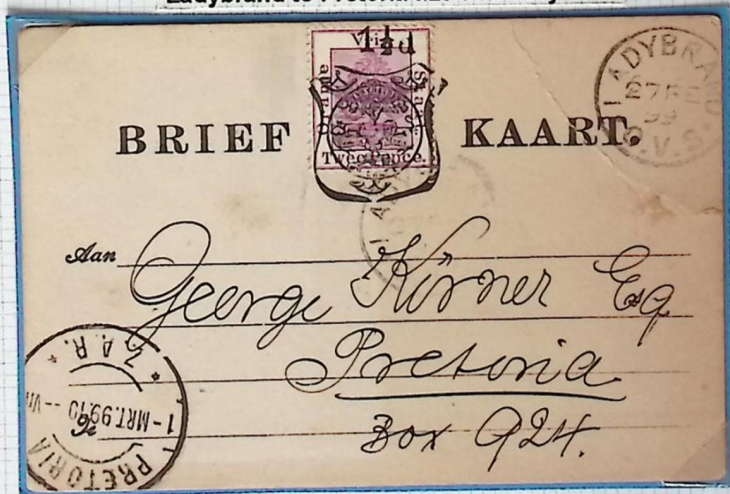 1½d
Vrij
Oranje Staat
Twee Pence.
BRIEF KAART.
LADYBRAND
27 FE
99
O.V.S.
Aan George Körner Esq
Pretoria
Box 924.
PRETORIA
1-MRT.99.10--Vm
Z.A.R.